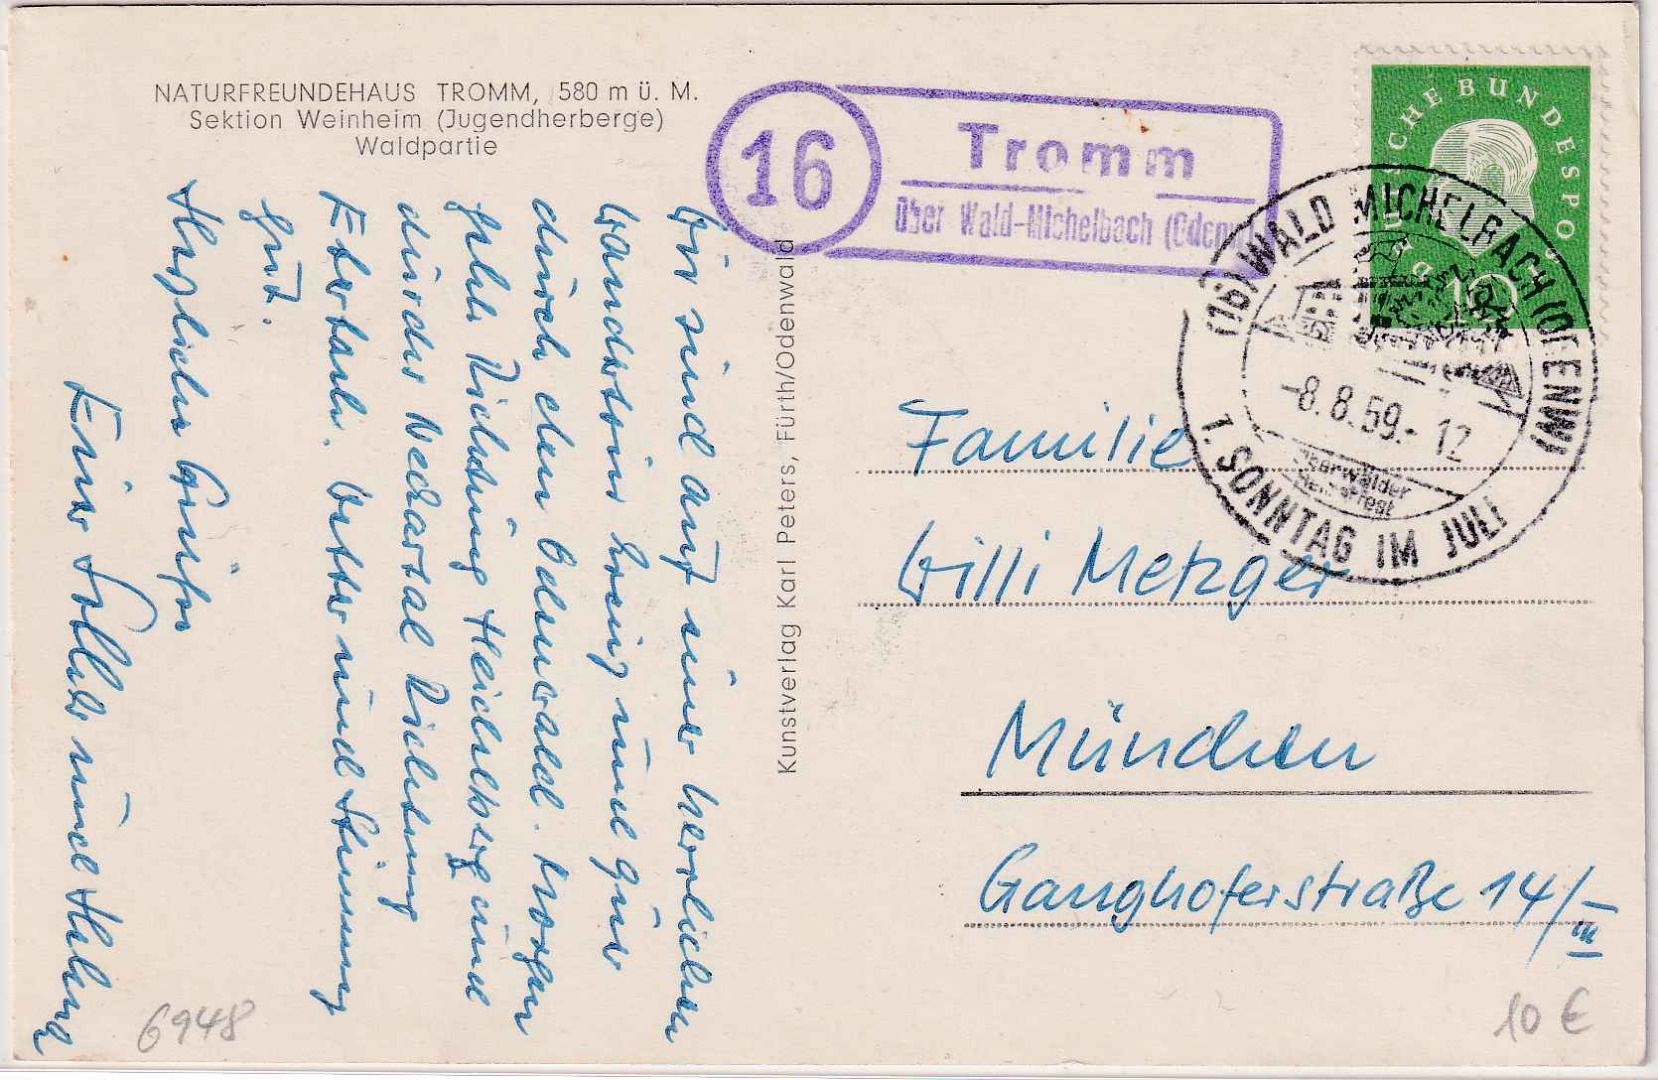 NATURFREUNDEHAUS TROMM, 580 m ü. M.
Sektion Weinheim (Jugendherberge)
Waldpartie
16
Tromm
über Wald-Michelbach (Odenw.)
DEUTSCHE BUNDESPOST
10
(16) WALD MICHELBACH (ODENW)
-8.8.59.- 12
1. SONNTAG IM JULI
Wir sind auf einer herrlichen
Wanderung und quer
durch den Odenwald. Morgen
geht's Richtung Heidelberg und
durchs Neckartal Richtung
Eberbach. Wetter und Stimmung
gut.
Herzliche Grüße
Eure und
Kunstverlag Karl Peters, Fürth/Odenwald
Familie
Willi Metzger
München
Ganghoferstraße 14/III
6948
10 €